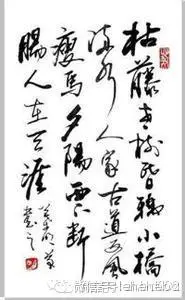 枯藤老树昏鸦小橋
流水人家古道西风
瘦马夕陽西下断
腸人在天涯
微信号